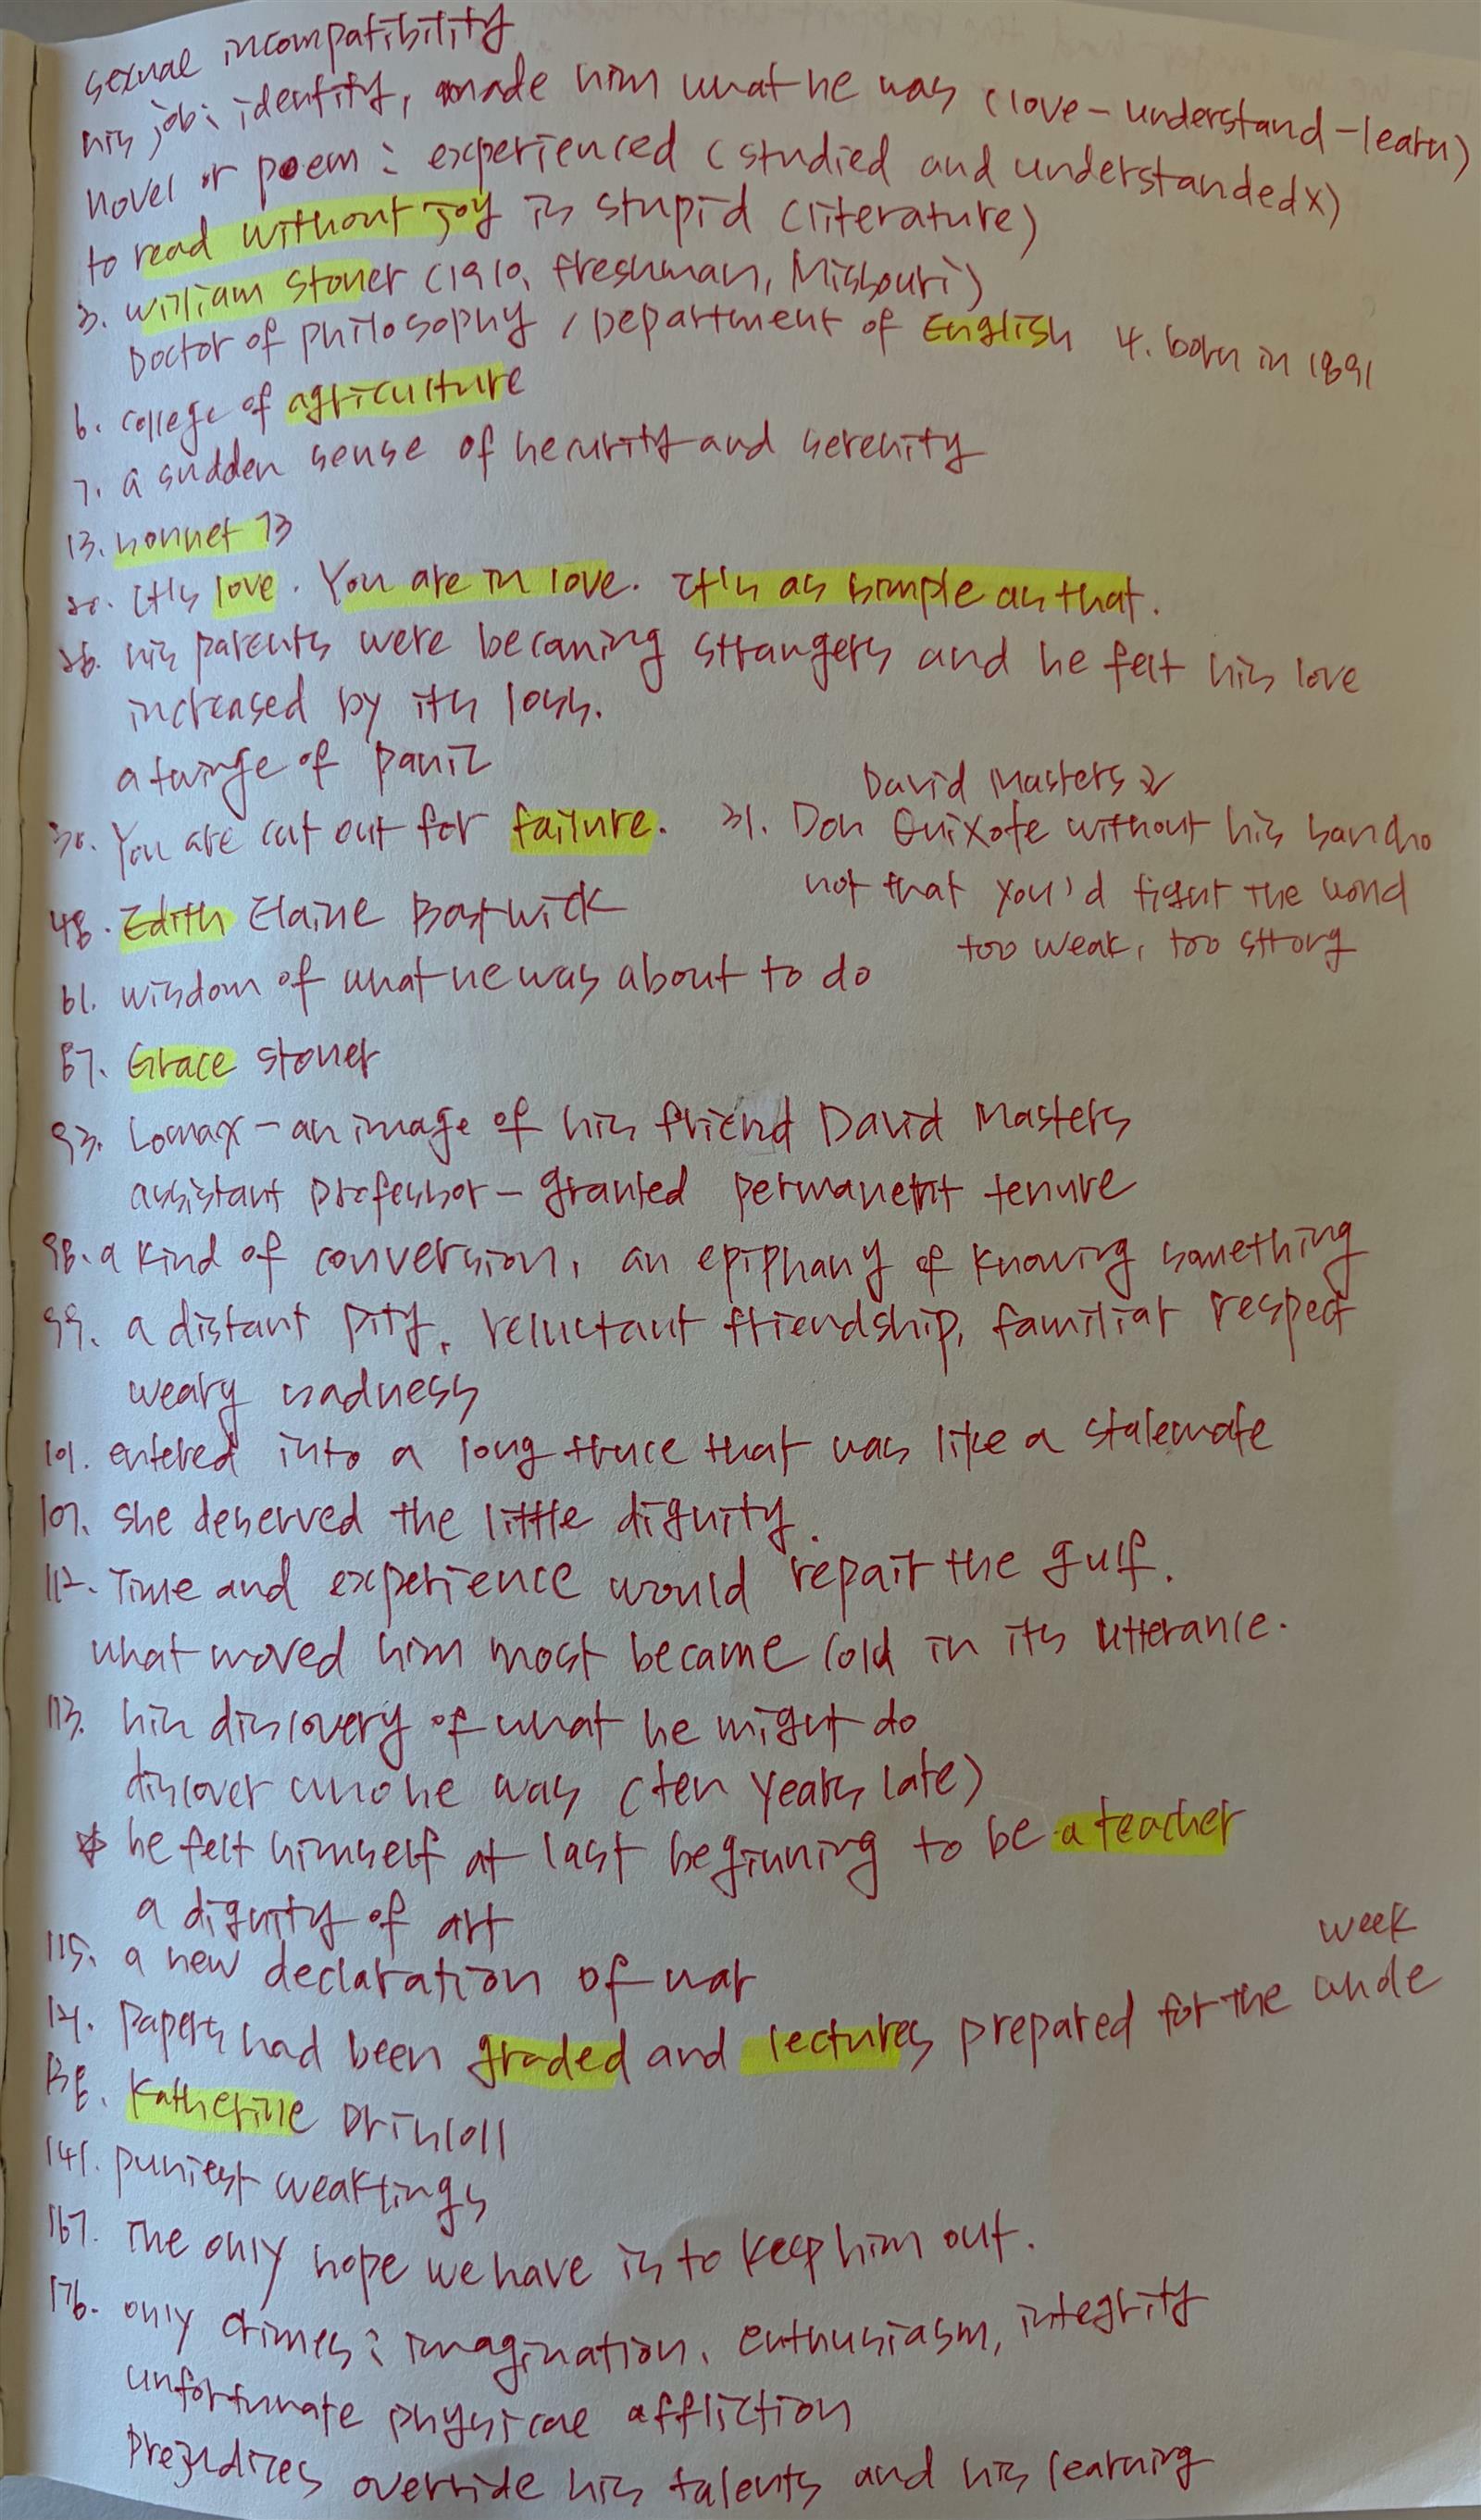 sexual incompatibility
his job: identity, made him what he was (love-understand-learn)
novel or poem: experienced (studied and understandedx)
to read without joy is stupid (literature)
3. William Stoner (1910, freshman, Missouri)
Doctor of philosophy / Department of English 4. born in 1891
6. college of agriculture
7. a sudden sense of security and serenity
13. sonnet 73
20. It's love. You are in love. It's as simple as that.
26. his parents were becaming strangers and he felt his love
increased by its loss.
a twinge of panic
David Masters
30. You are cut out for failure. 31. Don Quixote without his Sancho
not that you'd fight the world
48. Edith Elaine Bostwick
too weak, too strong
61. wisdom of what he was about to do
87. Grace Stoner
93. Lomax - an image of his friend David Masters
assistant professor - granted permanent tenure
98. a kind of conversion, an epiphany of knowing something
99. a distant pity, reluctant friendship, familiar respect
weary sadness
101. entered into a long truce that was like a stalemate
107. she deserved the little dignity.
112. Time and experience would repair the gulf.
what moved him most became cold in its utterance.
113. his discovery of what he might do
discover who he was (ten years late)
☆ he felt himself at last beginning to be a teacher
a dignity of art
115. a new declaration of war
week
121. papers had been graded and lectures prepared for the whole
138. Katherine Driscoll
141. puniest weaktings
167. The only hope we have is to keep him out.
176. only crimes: imagination, enthusiasm, integrity
unfortunate physical affliction
prejudices override his talents and his learning